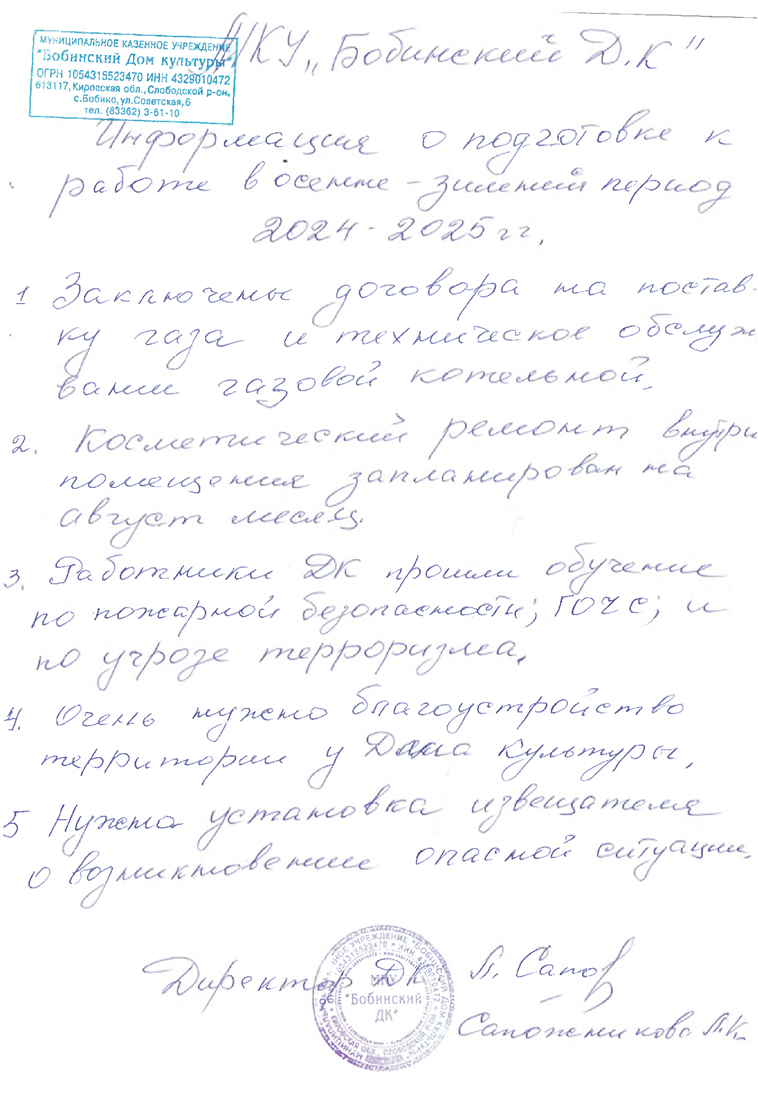 МУНИЦИПАЛЬНОЕ КАЗЕННОЕ УЧРЕЖДЕНИЕ
"Бобинский Дом культуры"
ОГРН 1054315523470 ИНН 4329010472
613117, Кировская обл., Слободской р-он,
с.Бобино, ул.Советская,6
тел. (83362) 3-61-10
МКУ „Бобинский Д.К"
Информация о подготовке к
работе в осенне-зимний период
2024-2025 гг.
1 Заключены договора на постав-
ку газа и техническое обслуж
вании газовой котельной.
2. Косметический ремонт внутри
помещения запланирован на
август месяц.
3. Работники ДК прошли обучение
по пожарной безопасности; ГОЧС; и
по угрозе терроризма.
4. Очень нужно благоустройство
территории у Дома культуры.
5 Нужна установка извещателя
о возникновении опасной ситуации.
Директор ДК Л. Сапож
МКУ
"Бобинский
ДК"
Сапожникова Л.К.